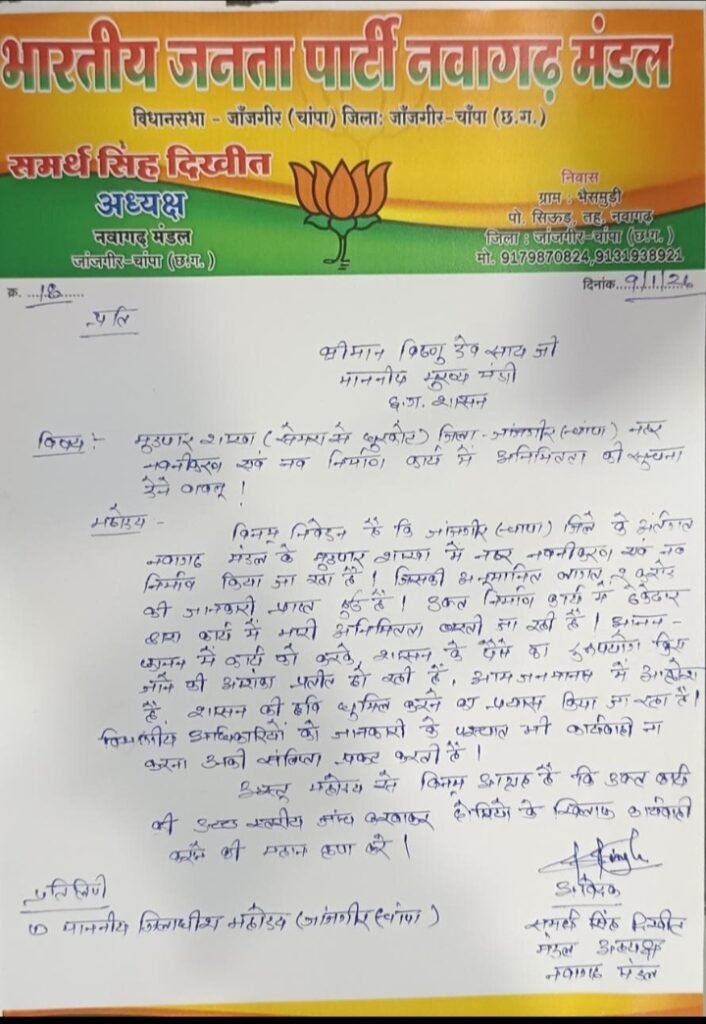 भारतीय जनता पार्टी नवागढ़ मंडल
विधानसभा - जाँजगीर (चांपा) जिला: जाँजगीर-चाँपा (छ.ग.)
समर्थ सिंह दिखीत
अध्यक्ष
नवागढ़ मंडल
जांजगीर-चांपा (छ.ग.)
निवास
ग्राम : भैसमुड़ी
पो. सिऊड़, तह. नवागढ़
जिला : जांजगीर-चांपा (छ.ग.)
मो. 9179870824,9131938921
क्र. ..18......
दिनांक..9/1/26
प्रति
श्रीमान विष्णु देव साय जी
माननीय मुख्य मंत्री
छ.ग. शासन
विषय :- मुडपार शाखा (सेमरा से धुरकोट) जिला - जांजगीर (चांपा) नहर
नवनीकरण एवं नव निर्माण कार्य में अनिमितता की सुचना
देने बाबत् !
महोदय -
विनम्र निवेदन है कि जांजगीर (चांपा) जिले के अंर्तगत
नवागढ़ मंडल के मुडपार शाखा में नहर नवनीकरण एवं नव
निर्माण किया जा रहा है ! जिसकी अनुमानित लागत 9 करोड़
की जानकारी प्राप्त हुई है ! उक्त निर्माण कार्य में ठेकेदार
द्वारा कार्य में भारी अनिमितता बरती जा रही है ! आनन -
फानन में कार्य को करके, शासन के पैसे का दुरुपयोग किए
जाने की आशंका प्रतीत हो रही है, आम जनमानस में आक्रोश
है, शासन की छवि धुमिल करने का प्रयास किया जा रहा है !
विभागीय अधिकारियों को जानकारी के पश्चात भी कार्यवाही ना
करना उनकी संलिप्ता प्रकट करती है !
अस्तु महोदय से विनम्र आग्रह है कि उक्त कार्य
की उच्च स्तरीय जांच करवाकर दोषियों के खिलाफ कार्यवाही
करने की महान कृपा करे !
आवेदक
समर्थ सिंह दिखीत
मंडल अध्यक्ष
नवागढ़ मंडल
प्रतिलिपी
माननीय जिलाधीश महोदय (जांजगीर चांपा)